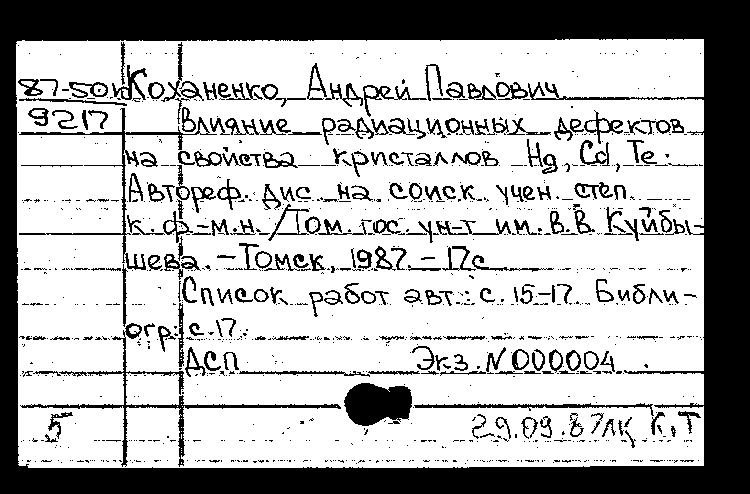 87-50к Коханенко, Андрей Павлович.
9217 Влияние радиационных дефектов
на свойства кристаллов Hg, Cd, Te:
Автореф. дис. на соиск. учен. степ.
к. ф.-м.н. /Том. гос. ун-т им. В.В. Куйбы-
шева. - Томск, 1987. - 17с
Список работ авт.: с. 15-17. Библи-
огр.: с.17.
ДСП Экз. N000004.
5 29.09.87лк К,Т